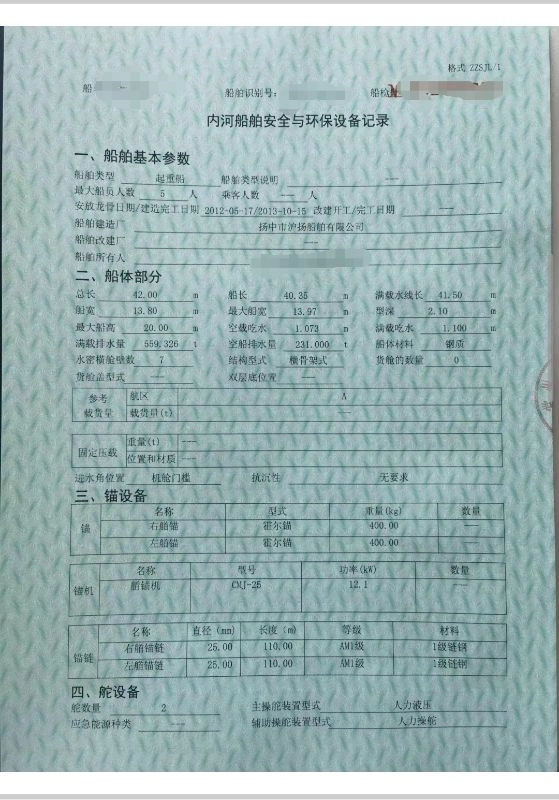 格式 ZZSJL/1
船 船舶识别号: 船检
内河船舶安全与环保设备记录
一、船舶基本参数
船舶类型 起重船 船舶类型说明 ---
最大船员人数 5 人 乘客人数 --- 人
安放龙骨日期/建造完工日期 2012-05-17/2013-10-15 改建开工/完工日期 ---
船舶建造厂 扬中市沪扬船舶有限公司
船舶改建厂 ---
船舶所有人
二、船体部分
总长 42.00 m 船长 40.35 m 满载水线长 41.50 m
船宽 13.80 m 最大船宽 13.97 m 型深 2.10 m
最大船高 20.00 m 空载吃水 1.073 m 满载吃水 1.100 m
满载排水量 559.326 t 空船排水量 231.000 t 船体材料 钢质
水密横舱壁数 7 结构型式 横骨架式 货舱的数量 0
货舱盖型式 --- 双层底位置 ---
参考载货量 航区 A
载货量(t) ---
固定压载 重量(t) ---
位置和材质 ---
进水角位置 机舱门槛 抗沉性 无要求
三、锚设备
锚 名称 型式 重量(kg) 数量
右艏锚 霍尔锚 400.00 ---
左艏锚 霍尔锚 400.00 ---
锚机 名称 型号 功率(kW) 数量
艏锚机 CMJ-25 12.1
锚链 名称 直径 (mm) 长度 (m) 等级 材料
右艏锚链 25.00 110.00 AM1级 1级链钢
左艏锚链 25.00 110.00 AM1级 1级链钢
四、舵设备
舵数量 2 主操舵装置型式 人力液压
应急能源种类 --- 辅助操舵装置型式 人力操舵